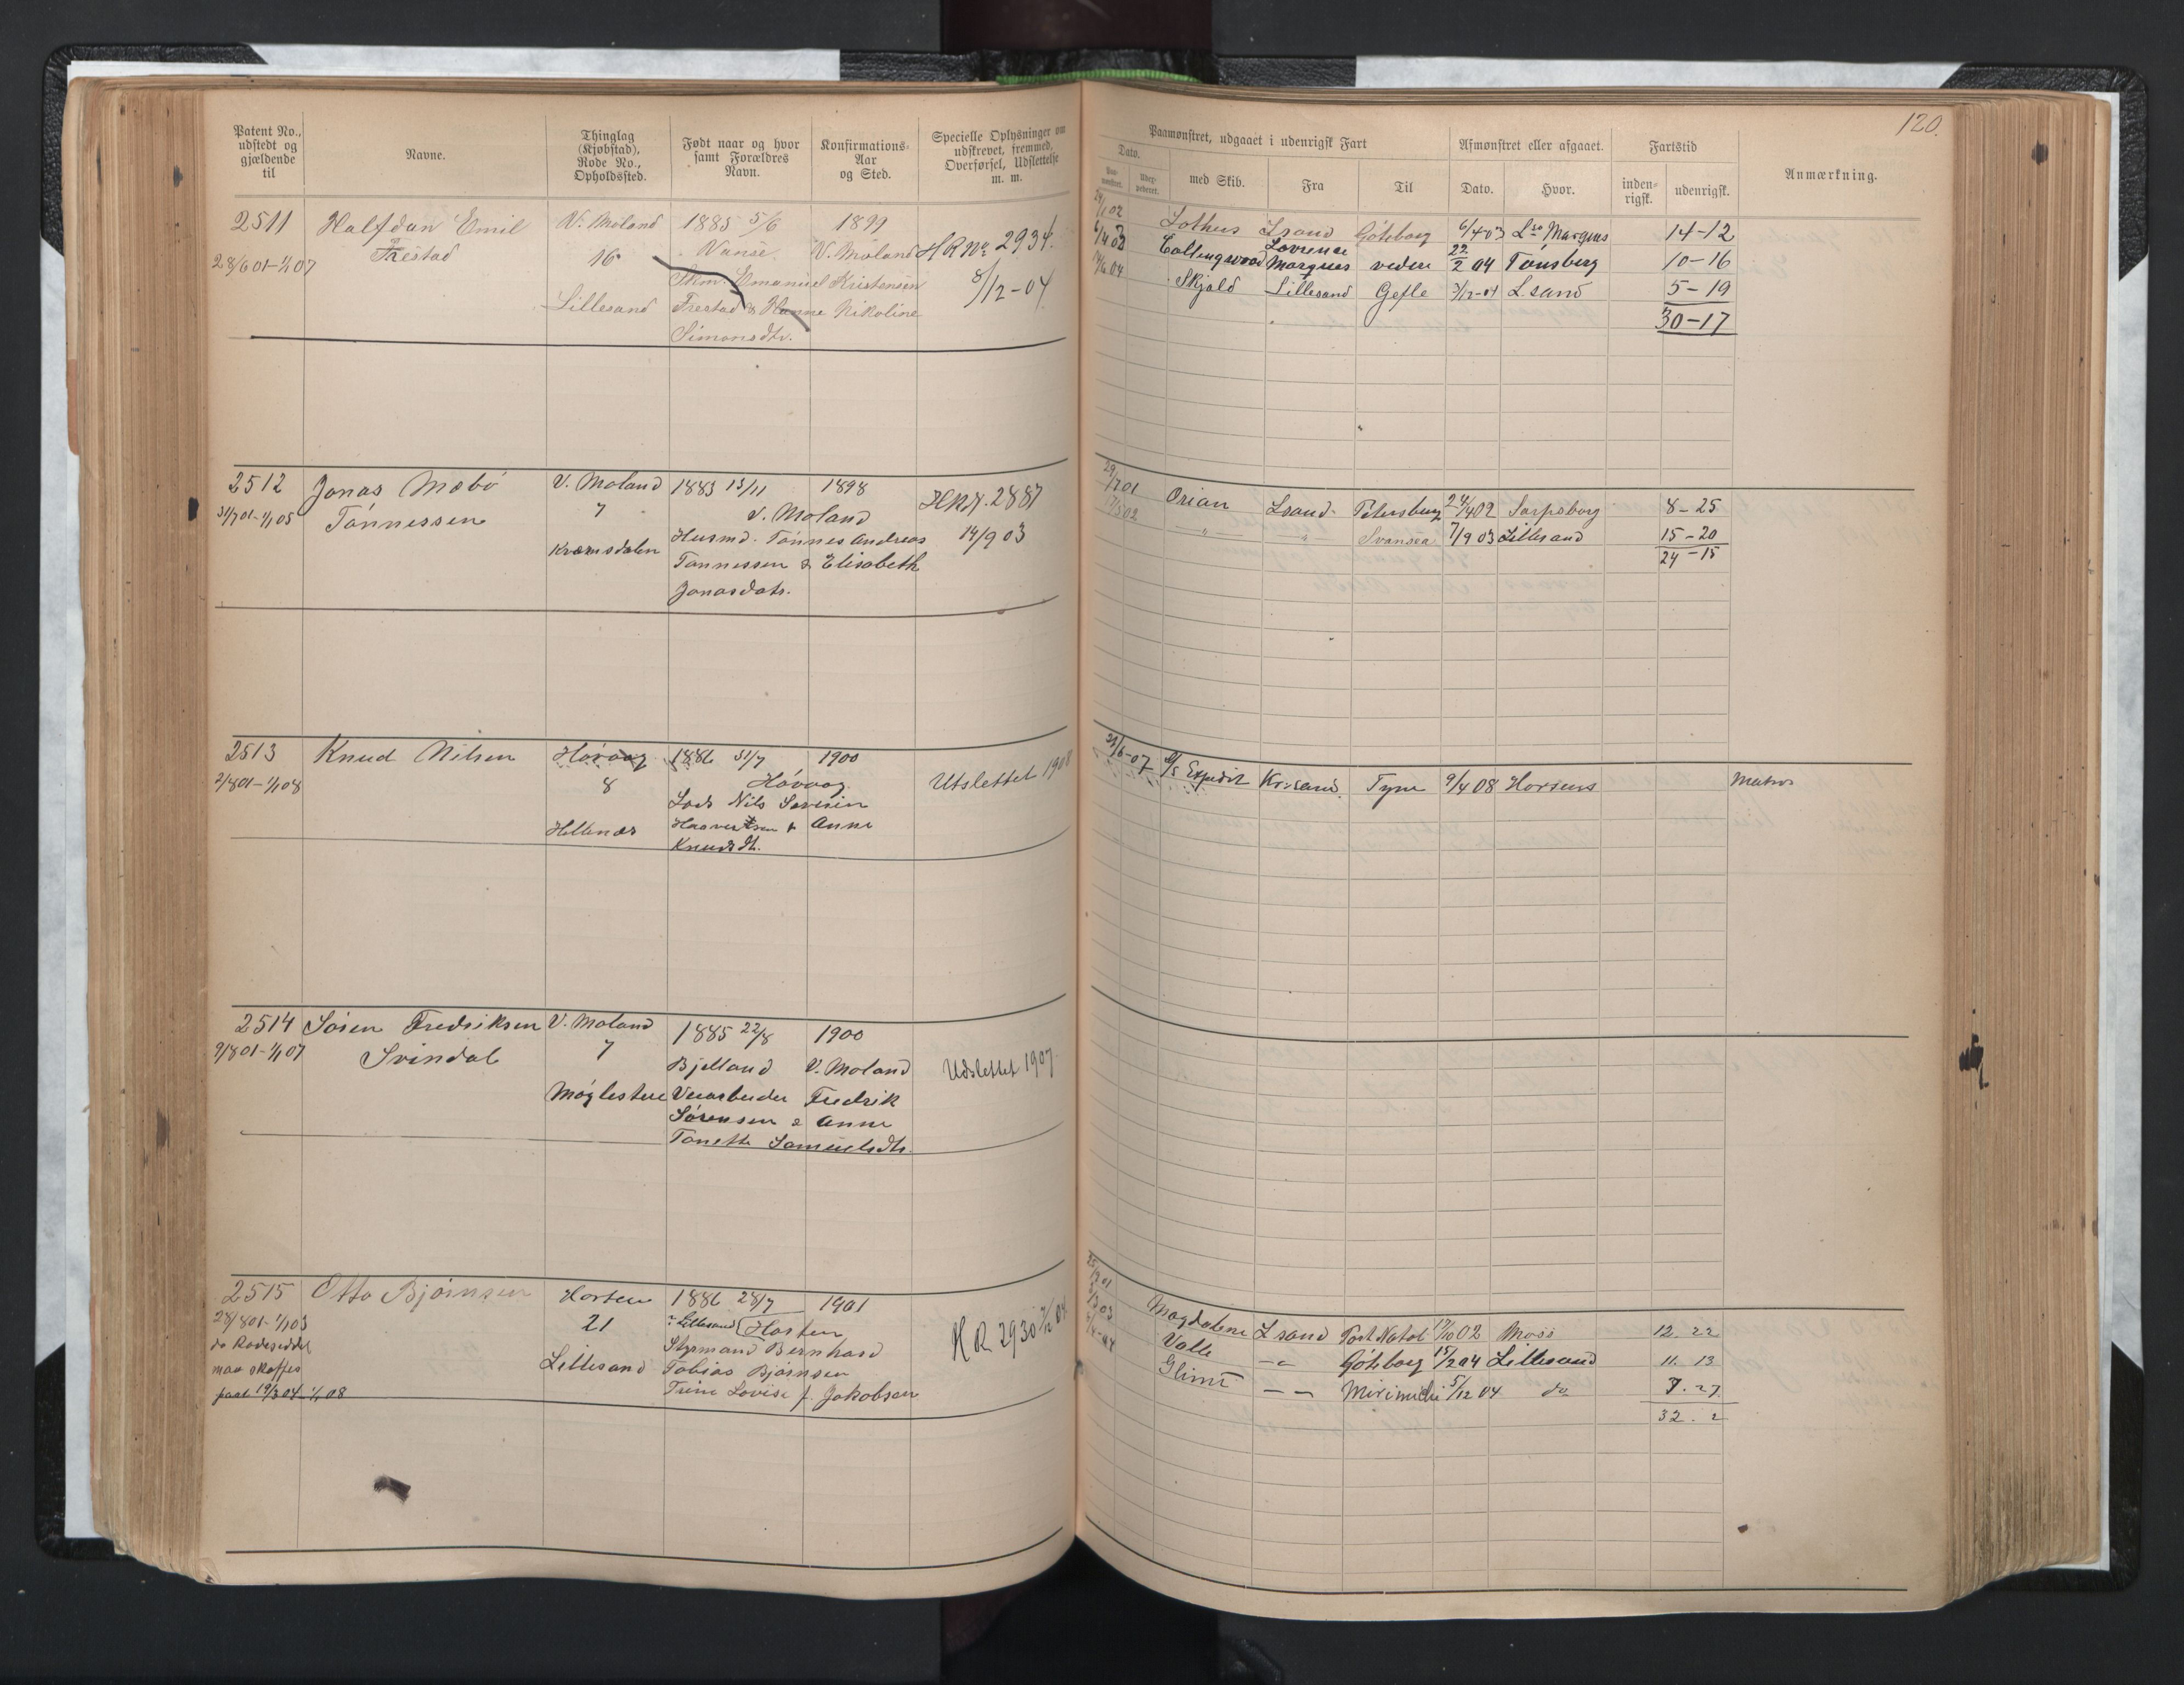 120.
Patent No., udstedt og gjældende til
Navne.
Thinglag (Kjøbstad), Rode No., Opholdssted.
Født naar og hvor samt Forældres Navn.
Konfirmations-Aar og Sted.
Specielle Oplysninger om udskrevet, fremmed, Overførsel, Udslettelse m. m.
Paamønstret, udgaaet i udenrigsk Fart
Dato.
med Skib.
Fra
Til
Afmønstret eller afgaaet.
Dato.
Hvor.
Fartstid
inden-rigsk.
udenrigsk.
Anmærkning.
2511
28/6 01-1/1 07
Halfdan Emil
Frestad
V. Moland
16
Lillesand
1885 5/6
Vanse
1899
V. Moland
Emanuel Kristensen
Frestad & Hanne Nikoline
Simonsdtr.
HR No 2934.
8/12-04
Lothus Lsand Göteborg 6/4-03 Lso Marques 14-12
Collingwood Lovrense Marques videre 22/2 04 Tønsberg 10-16
Skjold Lillesand Gefle 3/12-04 L.sand 5-19
30-17
2512
31/7 01-1/1 05
Jonas Mæbø
Tønnessen
V. Moland
7
Kræmsdalen
1883 13/11
1898
V. Moland
Husmd. Tønnes Andreas
Tønnessen & Elisabeth
Jonasdatr.
HRN. 2887
14/9 03
29/7 01
17/5 02
Orian Lsand Petersburg 24/4 02 Sarpsborg 8-25
-"- -"- Svansea 7/9 03 Lillesand 15-20
24-15
2513
2/8 01-1/1 08
Knud Nilsen
Høvaag
8
Hellenes
1886 31/7
1900
Høvaag
Lods Nils Severin
& Anne
Knudsdt.
Utslettet 1908
/6-07 Expedit Kr.sand Tyne 9/4 08 Horsens
Matros
2514
9/8 01-1/1 07
Søren Fredriksen
Svindal
V. Moland
7
Møglestue
1885 22/8
1900
Bjelland
V. Moland
Veiarbeider Fredrik
Sørensen & Anne
Tonette Samuelsdtr.
Udslettet 1907.
2515
28/8 01-1/1 03
do Rodeseddel
maa skaffes
paat 19/3 04-1/1 08
Otto Bjørnsen
Horten
21
Lillesand
1886 28/7
1901
Lillesand Horten
Styrmand Bernhard
Tobias Bjørnsen
Trine Lovise f. Jakobsen
HR 2930 04.
Magdalene Lsand Port Natal 17/10 02 Moss 12. 22
Valle -"- Göteborg 15/2 04 Lillesand 11. 13
Glimt -"- Mirimichi 5/12 04 do 7. 27
32. 2